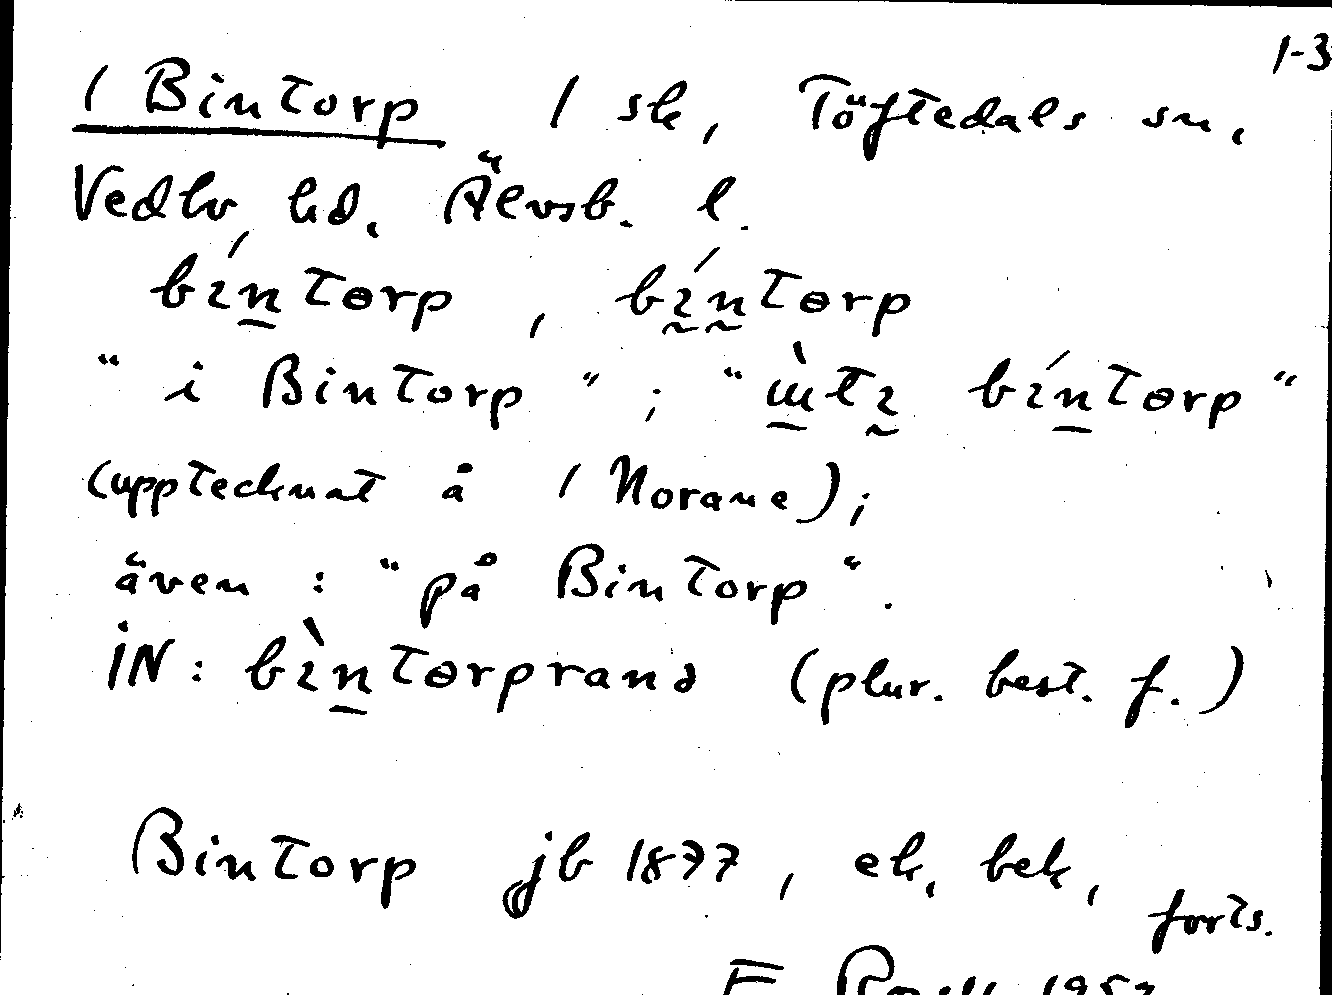 1-3
/ Bintorp / sk, Töftedals sn,
Vedbo hd, Älvsb. l.
bín̠tɵrp, bḭ́n̰tɵrp
"i Bintorp"; "bín̠tɵrp"
(upptecknat å / Norane);
även: "på Bintorp".
IN: bìn̠tɵrpranə (plur. best. f.)
Bintorp jb 1877, ek, bek,
forts.
1957